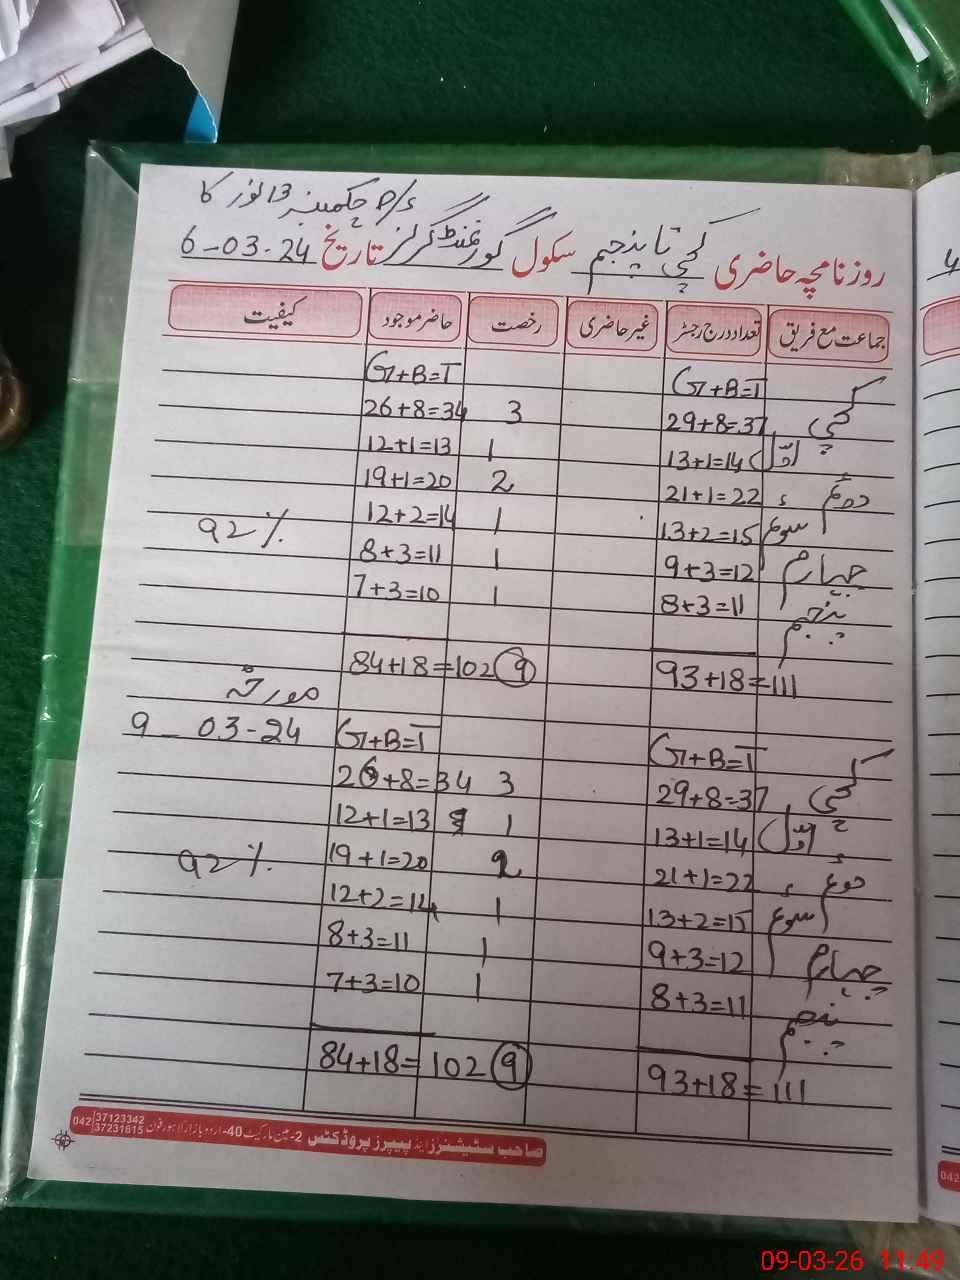 گورنمنٹ گرلز P/S چکمبنبر 13 نور کا
روزنامچہ حاضری کچی تا پنجم سکول گورنمنٹ گرلز تاریخ 6-03-24
جماعت مع فریق تعداد درج رجسٹر غیر حاضری رخصت حاضر موجود کیفیت
G+B=T G+B=T
کچی 29+8=37 3 26+8=34
اول 13+1=14 1 12+1=13
دوئم 21+1=22 2 19+1=20
سوئم 13+2=15 1 12+2=14 92%
چہارم 9+3=12 1 8+3=11
پنجم 8+3=11 1 7+3=10
93+18=111 9 84+18=102
مورخہ
9-03-24
G+B=T G+B=T
کچی 29+8=37 3 26+8=34
اول 13+1=14 1 12+1=13
دوئم 21+1=22 2 19+1=20 92%
سوئم 13+2=15 1 12+2=14
چہارم 9+3=12 1 8+3=11
پنجم 8+3=11 1 7+3=10
93+18=111 9 84+18=102
صاحب سٹیشنرز اینڈ پیپرز پروڈکٹس 2-مین مارکیٹ 40-اردو بازار لاہور فون 042 37123342 37231615
042
09-03-26 11:49